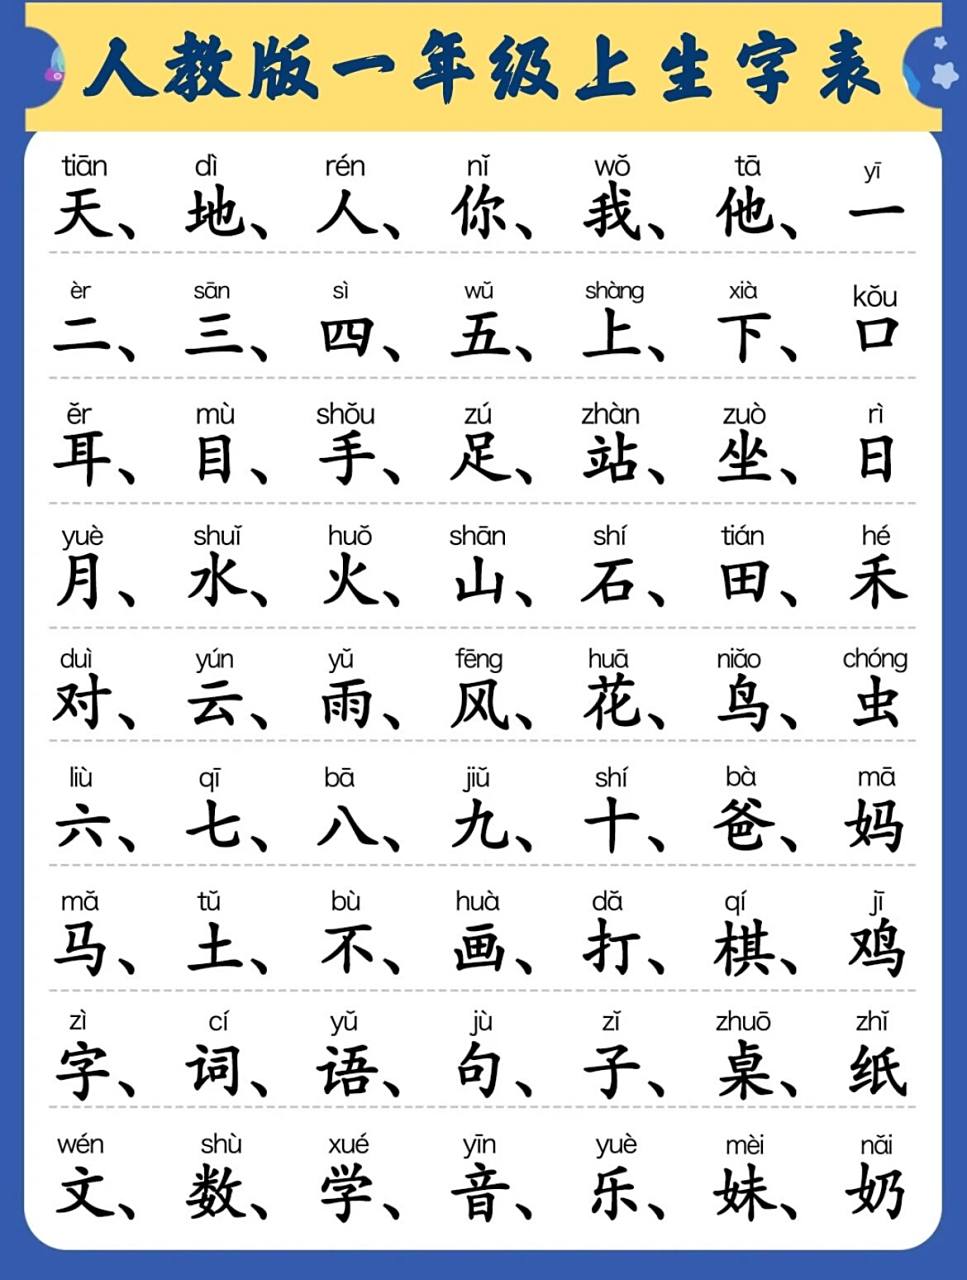 人教版一年级上生字表
tiān dì rén nǐ wǒ tā yī
天、地、人、你、我、他、一
èr sān sì wǔ shàng xià kǒu
二、三、四、五、上、下、口
ěr mù shǒu zú zhàn zuò rì
耳、目、手、足、站、坐、日
yuè shuǐ huǒ shān shí tián hé
月、水、火、山、石、田、禾
duì yún yǔ fēng huā niǎo chóng
对、云、雨、风、花、鸟、虫
liù qī bā jiǔ shí bà mā
六、七、八、九、十、爸、妈
mǎ tǔ bù huà dǎ qí jī
马、土、不、画、打、棋、鸡
zì cí yǔ jù zǐ zhuō zhǐ
字、词、语、句、子、桌、纸
wén shù xué yīn yuè mèi nǎi
文、数、学、音、乐、妹、奶